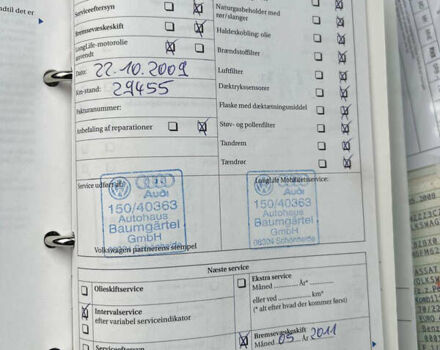 Serviceeftersyn
Bremsevæskeskift
LongLife-motorolie
anvendt
Dato: 22.10.2009
Km-stand: 29455
Fakturanummer:
Anbefaling af reparationer
Service udført af:
Audi
150/40363
Autohaus
Baumgärtel
GmbH
Volkswagen partnerens stempel
Naturgasbeholder med
rør/slanger
Haldexkobling: olie
Brændstoffilter
Luftfilter
Dæktrykssensorer
Flaske med dæktætningsmiddel
Støv- og pollenfilter
Tandrem
Tændrør
LongLife Mobilitetsservice:
Audi
150/40363
Autohaus
Baumgärtel
GmbH
Næste service
Olieskiftservice
Intervalservice
efter variabel serviceindikator
Serviceeftersyn
Ekstra service
Måned ........ År*
eller ved ........ km*
(* alt efter hvad der kommer først)
Bremsevæskeskift
Måned 05 År 2011